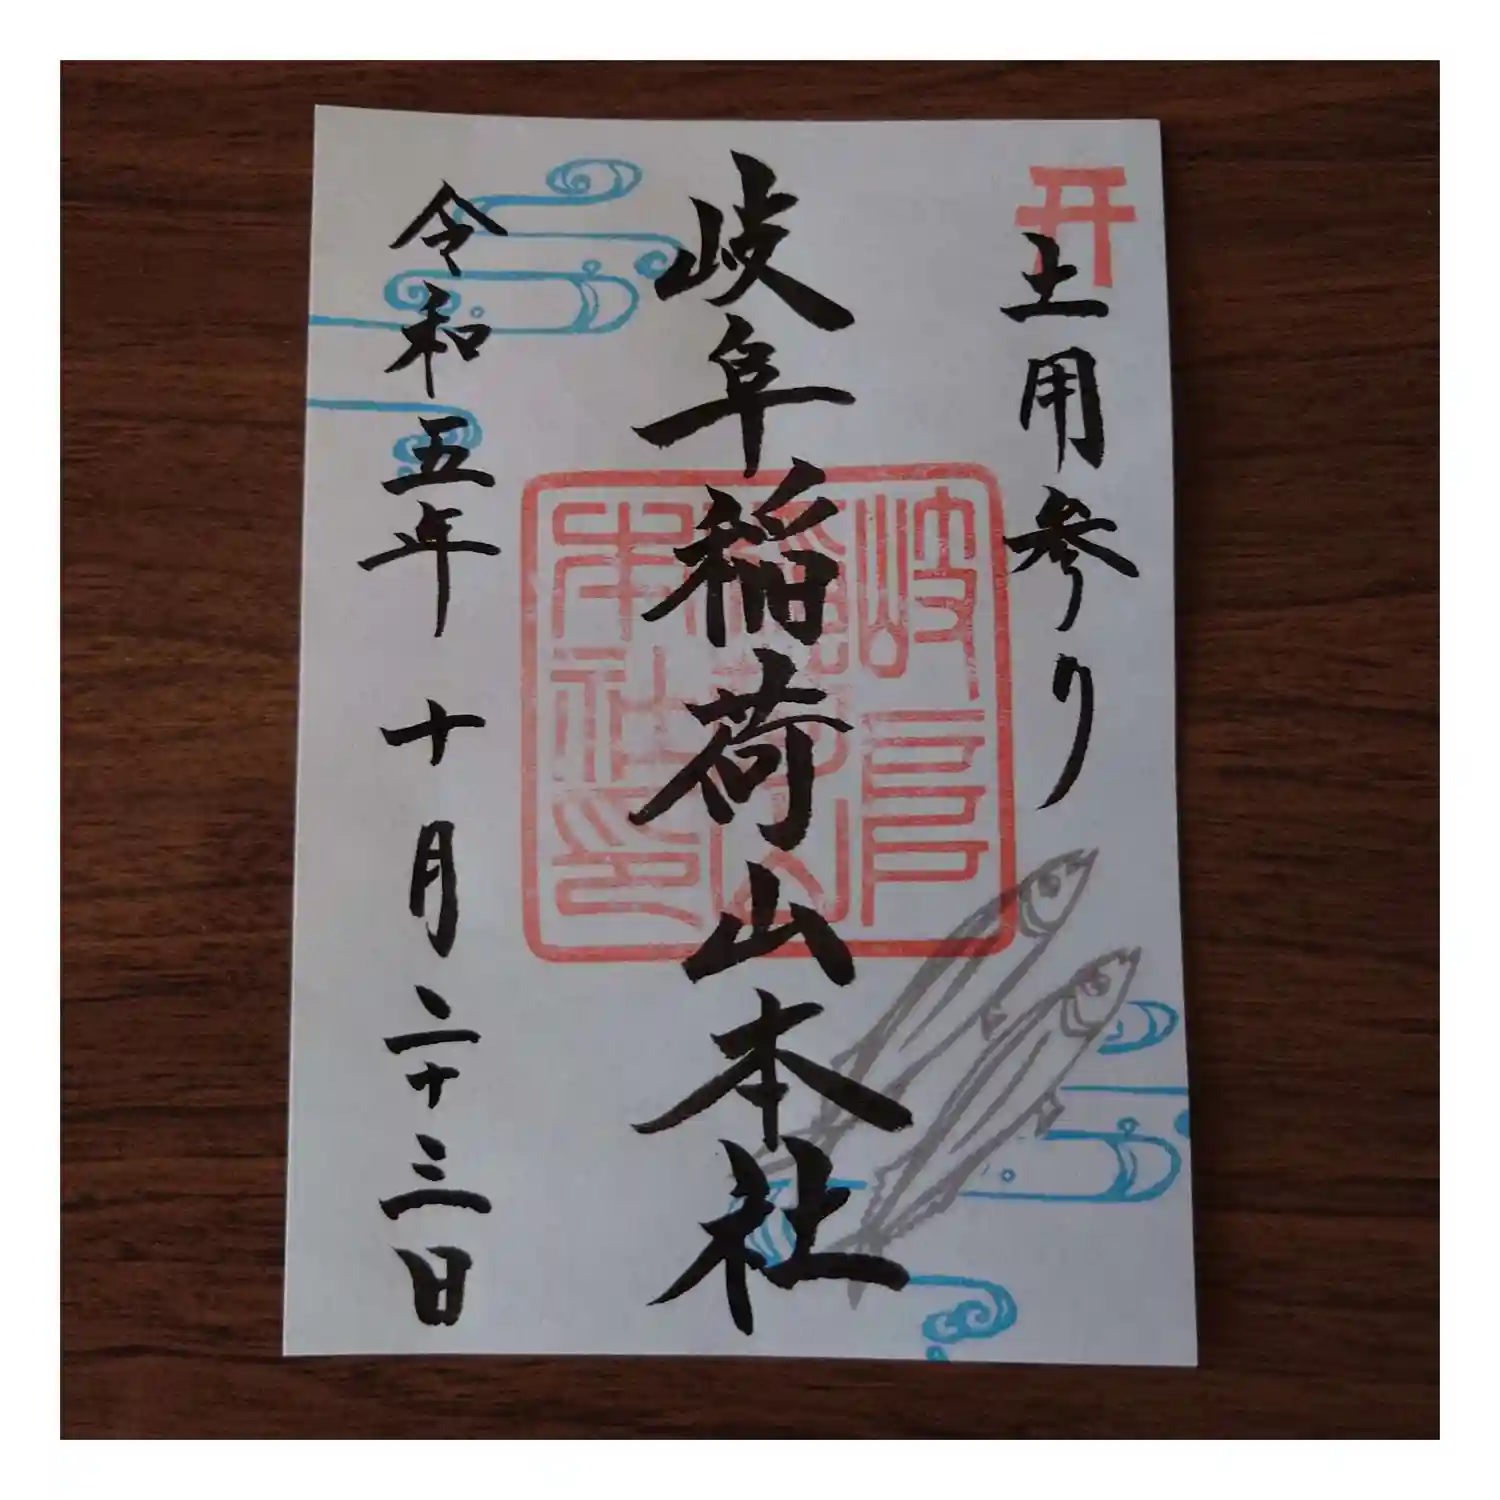 土用参り
岐阜稲荷山本社
岐阜
稲荷山
本社印
令和五年 十月二十三日